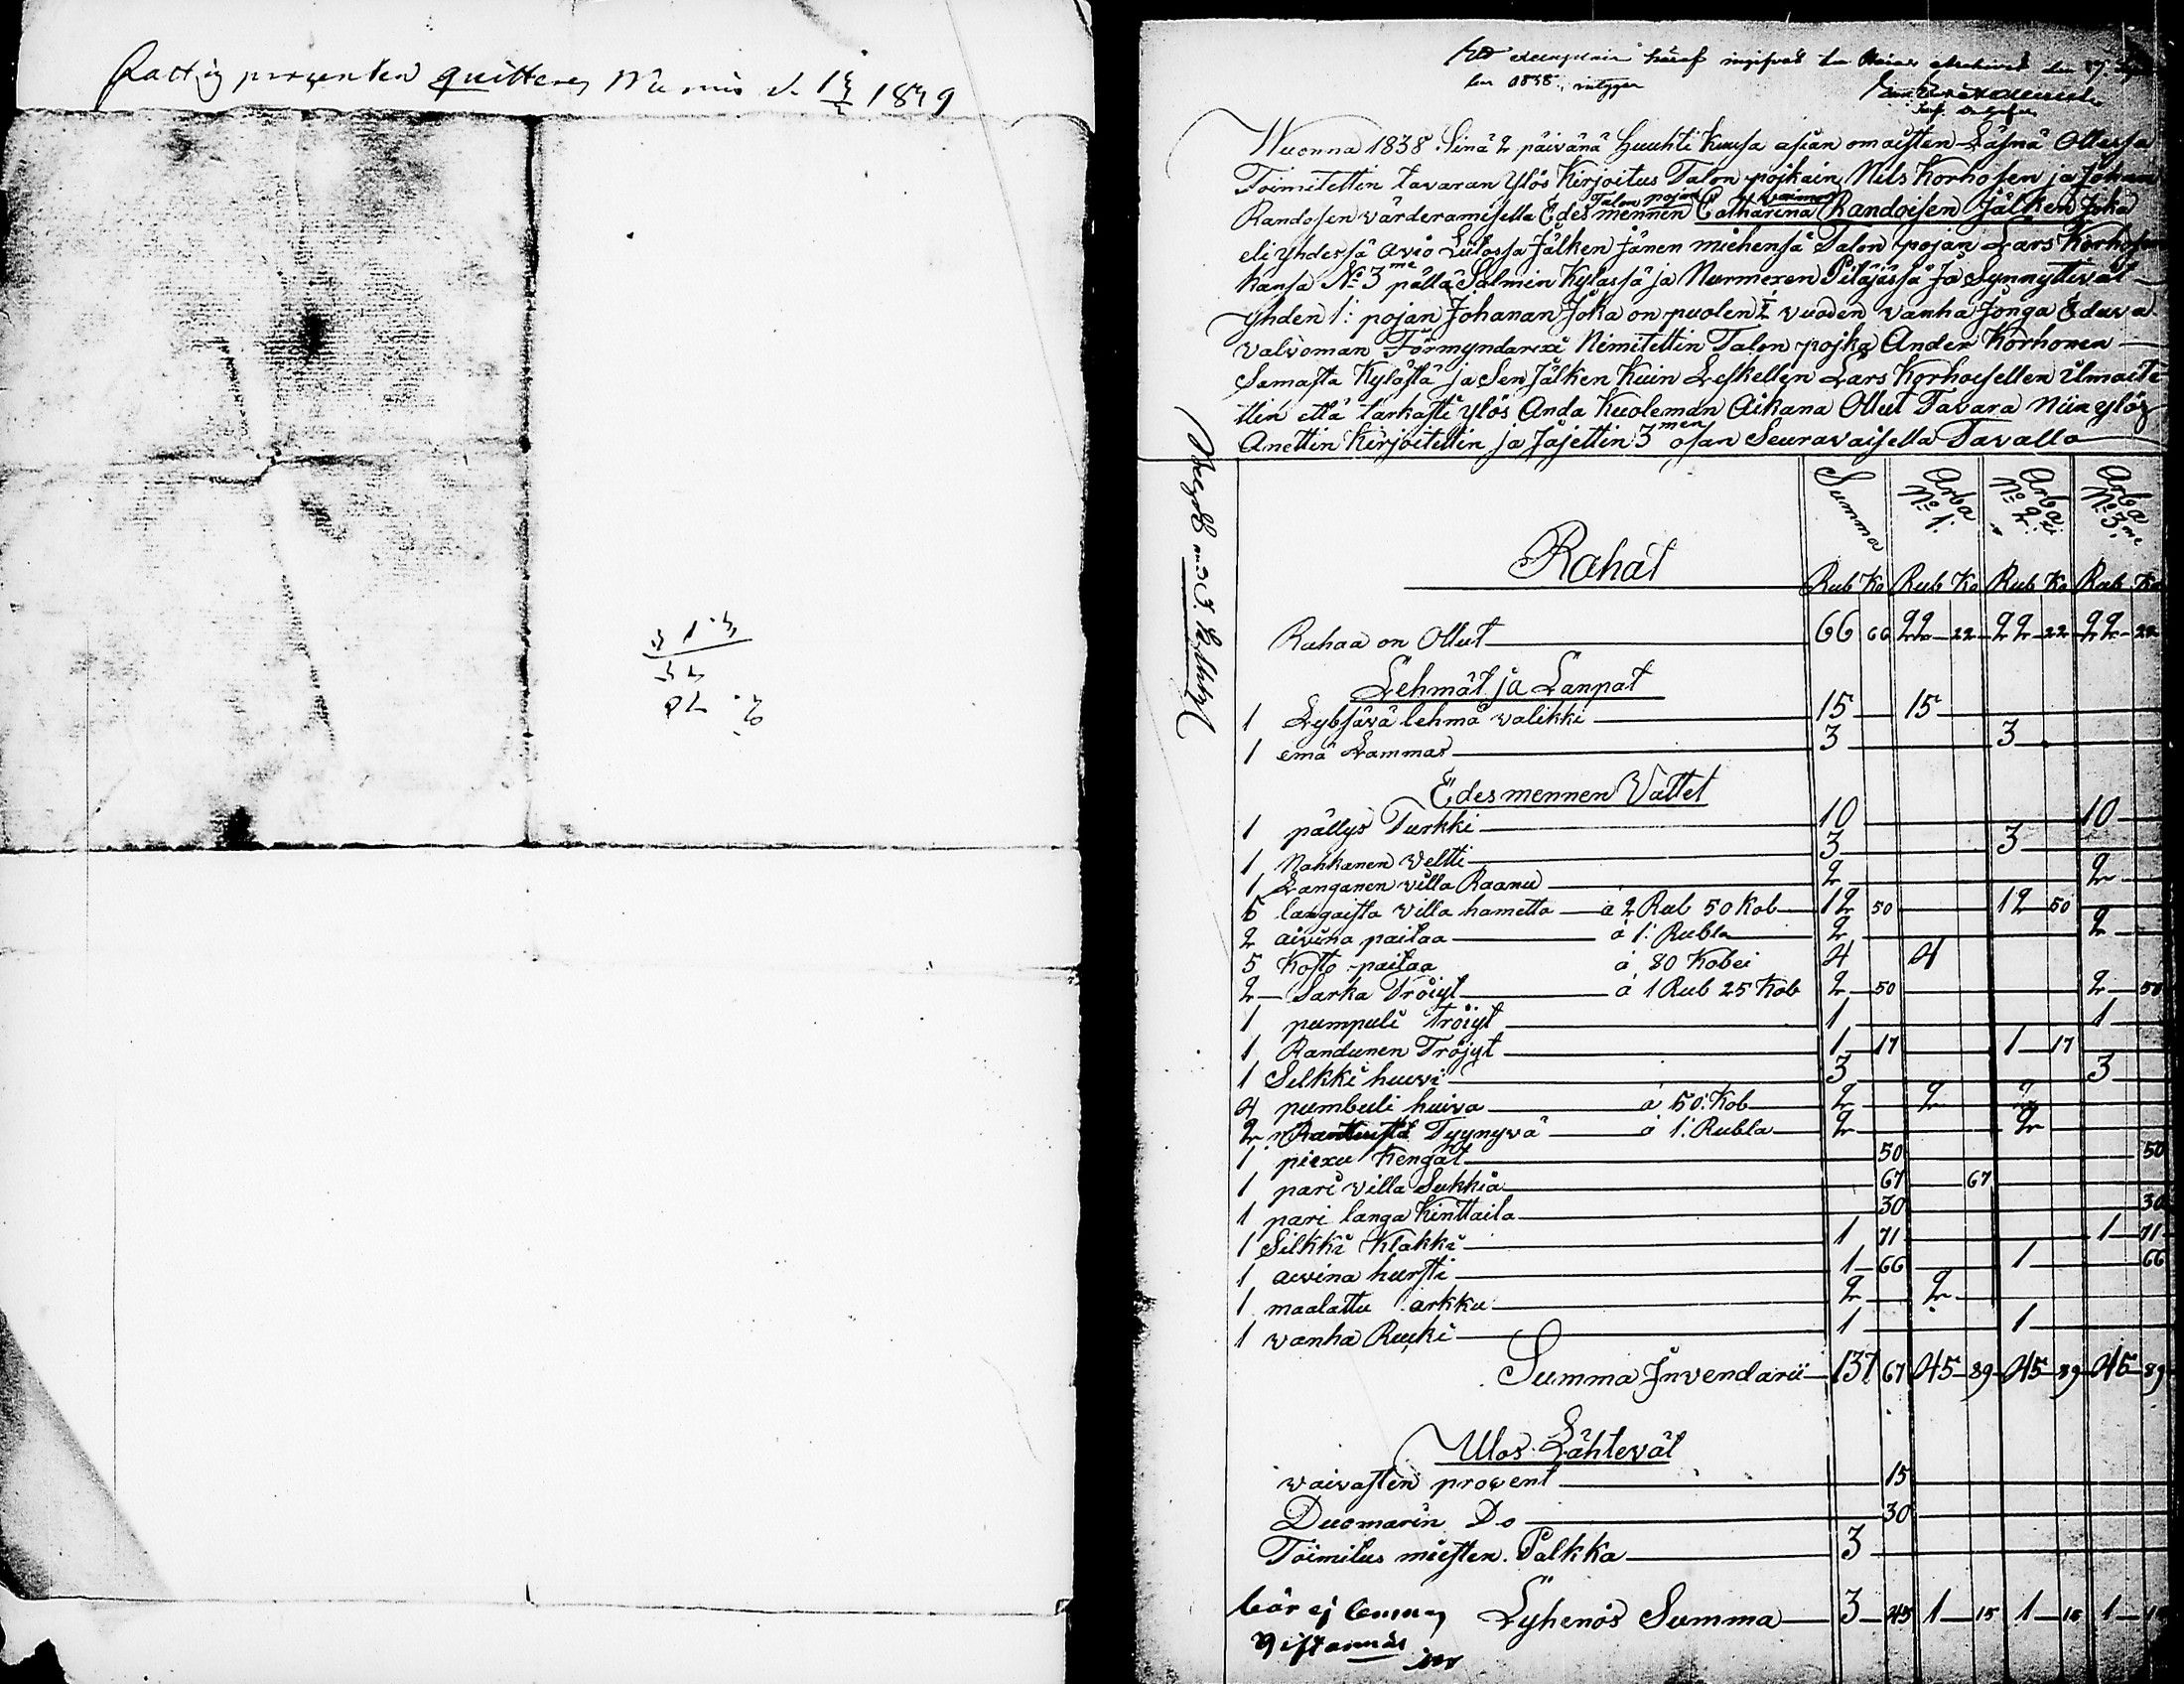 Fattig procenten quitteras Nurmis d. 1839
Ett exemplair häraf ingifvet den 27.
1838, intygar
Wuonna 1838 Sinä 2 päivänä Huuhti Kuusa asian omaisten Läsnä Ollessa
Toimitettin tavaran Ylös Kirjoitus Talon pojkain Nils Korhosen ja Johan
Talon pojan Waimon
Randosen värderamisella Edesmennen Catharina Randoisen Jälken Joka
eli yhdessä avio Liitossa Jälken Jänen miehensä Talon pojan Lars Korhosen
kansa No 3me pällä Salmin Kylässä ja Nurmexen Pitäjässä Ja Synnytivät
yhden 1: pojan Johanan Joka on puolen 2 vuoden vanha Jonga Eduva
valvoman Förmyndarixi Nimitettin Talon pojka Ander Korhonen
Samasta Kylästä ja Sen Jälken Kuin Leskellen Lars Korhoisellen ilmaite
ttin että tarkasti ylös Anda Kuoleman Aikana Ollut Tavara Niin ylös
Anettin Kirjoitettin ja Jajettin 3men osan Seuravaisella Tavalla
Summa Arba No 1. Arba No 2. Arba No 3me
Rahat Rub Ko Rub Ko Rub Ko Rub Ko
Rahaa on Ollut 66 66 22 22 22 22 22 22
Lehmät ja Lanpat
1 Lybsävä lehmä valikki 15 15
1 emä Lammas 3 3
Edesmennen Vattet
1 pällys Turkki 10 10
1 Nahkanen Veltti 3 3
1 Langanen villa Raanu 2 2
5 langaista villa hametta a 2 Rub 50 Kob 12 50 12 50
2 aivina paitaa á 1: Rubla 2 2
5 Kosto paitaa á 80 Kobei 4 4
2 Sarka Tröiyt á 1 Rub 25 Kob 2 50 2 50
1 pumpuli Tröiyt 1 1
1 Randunen Tröjyt 1 17 1 17
1 Selkki huivi 3 3
4 pumbuli huiva á 50: Kob 2 2
2 Tyynyvä á 1: Rubla 2 2
1 piexu Kengät 50 50
1 pari villa Sukkia 67 67
1 pari langa Kinttaita 30 30
1 Silkki Klakki 1 71 1 71
1 aivina hursti 1 66 1 66
1 maalattu arkku 2 2
1 vanha Rucki 1 1
Summa Invendarii 137 67 45 89 45 89 45 89
Ulos Lähtevät
vaivasten procent 15
Duomarin Do 30
Toimitus miesten Palkka 3
Lyhenös Summa 3 45 1 15 1 15 1 15